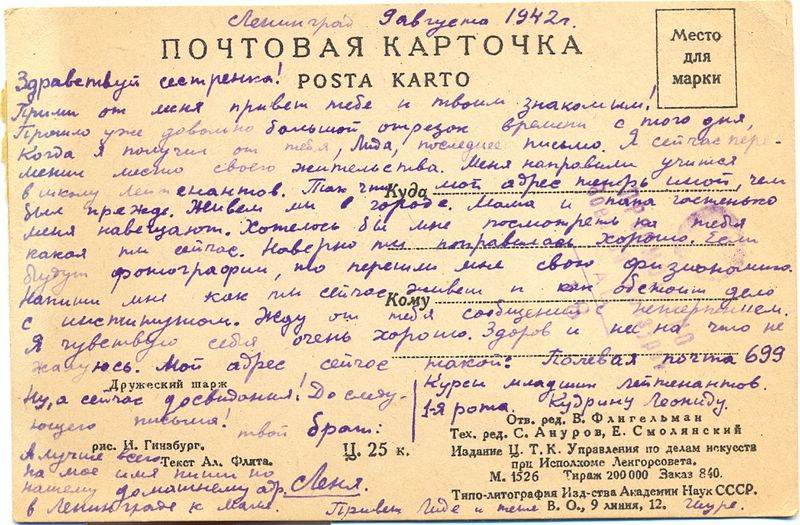 Ленинград 9 августа 1942 г.
ПОЧТОВАЯ КАРТОЧКА
POSTA KARTO
Место
для
марки
Здравствуй сестренка!
Прими от меня привет тебе и твоим знакомым!
Прошло уже довольно большой отрезок времени с того дня,
Когда я получил от тебя, Лида, последнее письмо. Я сейчас пере-
менил место своего жительства. Меня направили учится
в школу лейтенантов. Так что мой адрес теперь иной, чем
Куда
был прежде. Живем мы в городе. Мама и папа частенько
меня навещают. Хотелось бы мне посмотреть на тебя
какая ты сейчас. Наверно ты поправилась хорошо. Если
будут фотографии, то перешли мне свою физиономию.
Напиши мне как ты сейчас живешь и как обстоит дело
Кому
с институтом. Жду от тебя сообщений с нетерпением.
Я чувствую себя очень хорошо. Здоров и ни на что не
жалуюсь. Мой адрес сейчас такой: Полевая почта 699
Курсы младших лейтенантов.
1-я рота. Кудрину Леониду.
Дружеский шарж
Ну, а сейчас досвидания! До следу-
ющего письма!
твой брат:
рис. И. Гинзбург.
Текст Ал. Флита.
Ц. 25 к.
А лучше всего
на мое имя пиши по
нашему домашнему адр.
в Ленинграде к Маме.
Леня.
Привет Лиде и тете Шуре.
Отв. ред. В. Флигельман
Тех. ред. С. Ануров, Е. Смолянский
Издание Ц. Т. К. Управления по делам искусств
при Исполкоме Ленгорсовета.
М. 1526 Тираж 200 000 Заказ 840.
Типо-литография Изд-ства Академии Наук СССР.
В. О., 9 линия, 12.